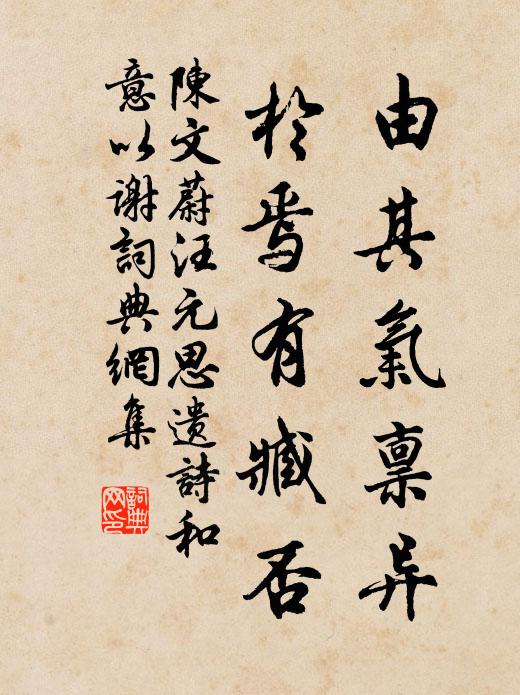 由其氣禀异
於焉有臧否
陳文蔚汪元思遗詩和
意以谢詞典網集
詞典
网印